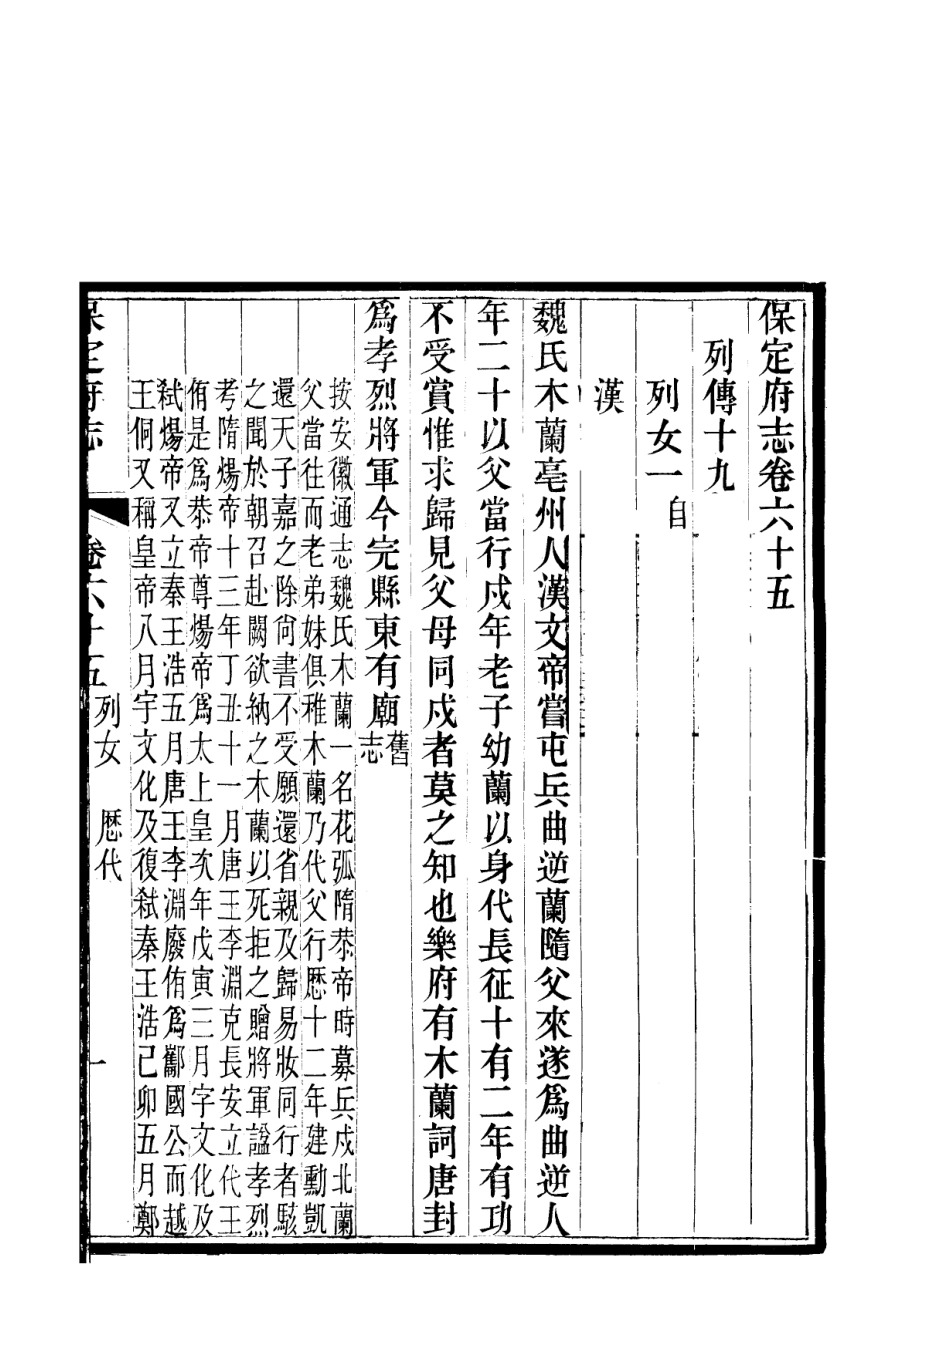 保定府志卷六十五
列傳十九
列女一 自
漢
魏氏木蘭亳州人漢文帝嘗屯兵曲逆蘭隨父來遂爲曲逆人
年二十以父當行戍年老子幼蘭以身代長征十有二年有功
不受賞惟求歸見父母同戍者莫之知也樂府有木蘭詞唐封
爲孝烈將軍今完縣東有廟舊志
按安徽通志魏氏木蘭一名花弧隋恭帝時募兵戍北蘭
父當往而老弟妹俱稚木蘭乃代父行歷十二年建勳凱
還天子嘉之除尙書不受願還省親及歸易妝同行者駭
之聞於朝召赴闕欲納之木蘭以死拒之贈將軍諡孝烈
考隋煬帝十三年丁丑十一月唐王李淵克長安立代王
侑是爲恭帝尊煬帝爲太上皇次年戊寅三月宇文化及
弑煬帝又立秦王浩五月唐王李淵廢侑爲酅國公而越
王侗又稱皇帝八月宇文化及復弑秦王浩己卯五月鄭
保定府志 卷六十五 列女 歷代 一